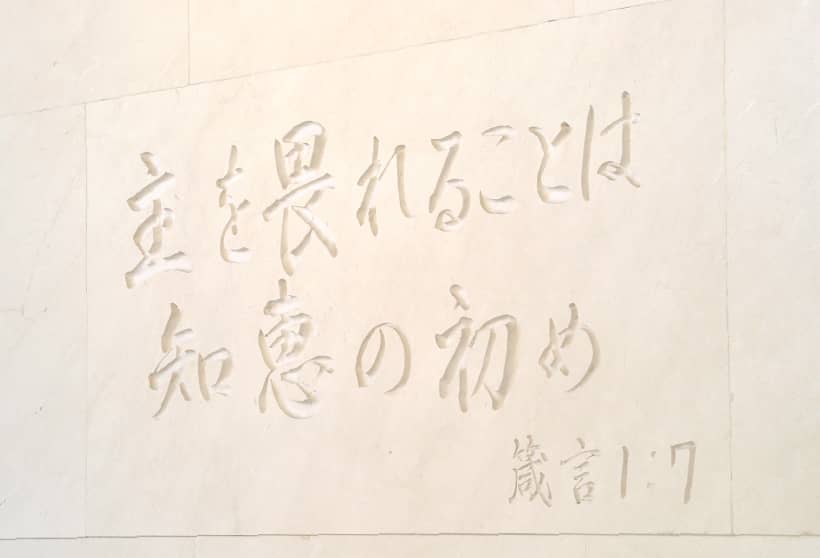 主を畏れることは
知恵の初め
箴言1:7